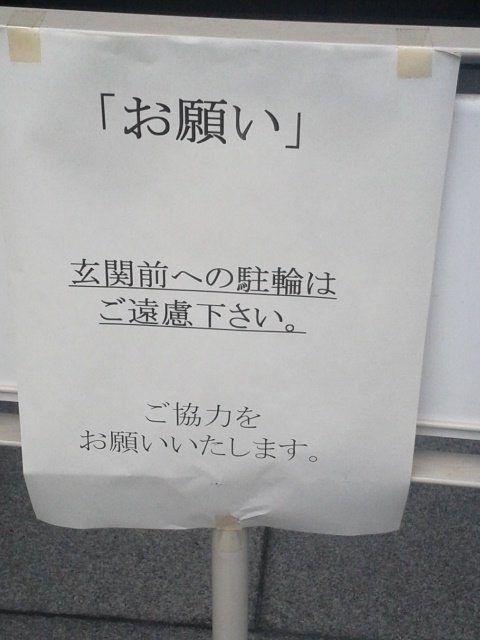 「お願い」
玄関前への駐輪は
ご遠慮下さい。
ご協力を
お願いいたします。